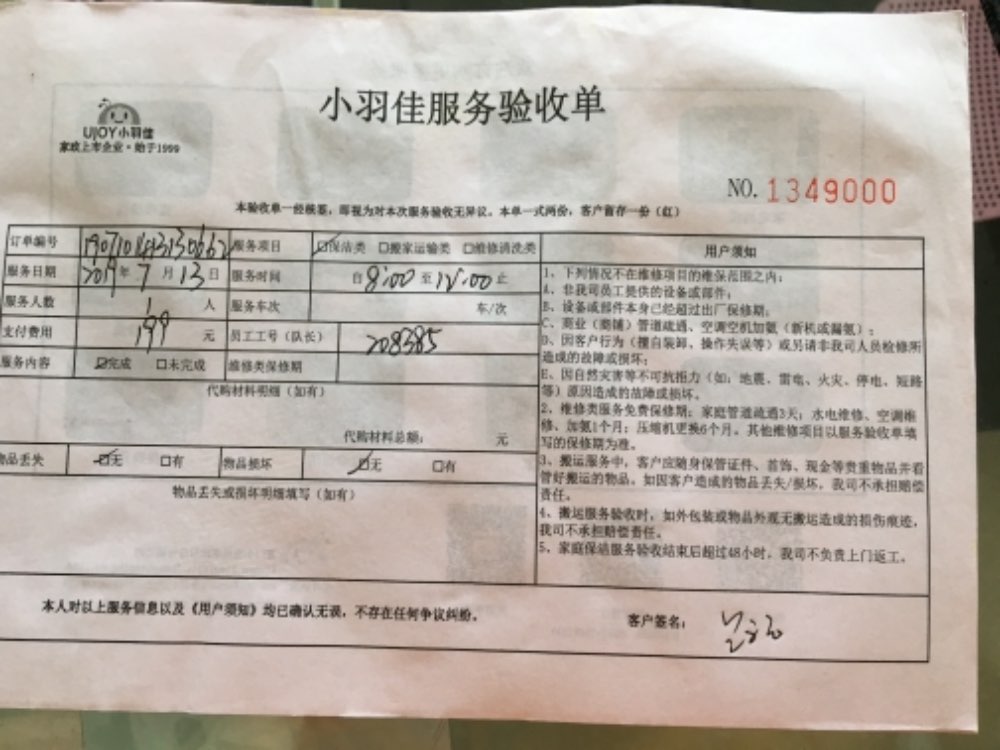 小羽佳服务验收单
UJOY小羽佳
家政上市企业·始于1999
NO. 1349000
本验收单一经核签，即视为对本次服务验收无异议。本单一式两份，客户留存一份（红）
订单编号 服务项目 ☑保洁类 □搬家运输类 □维修清洗类
服务日期 2019年7月13日 服务时间 自8:00至12:00止
服务人数 1人 服务车次 车/次
支付费用 199元 员工工号（队长） 208385
服务内容 ☑完成 □未完成 维修类保修期
代购材料明细（如有）
代购材料总额： 元
物品丢失 ☑无 □有 物品损坏 ☑无 □有
物品丢失或损坏明细填写（如有）
用户须知
1、下列情况不在维修项目的维保范围之内：
A、非我司员工提供的设备或部件；
B、设备或部件本身已经超过出厂保修期；
C、商业（商铺）管道疏通、空调空机加氨（新机或漏氨）；
D、因客户行为（擅自装卸、操作失误等）或另请非我司人员检修所
造成的故障或损坏；
E、因自然灾害等不可抗拒力（如：地震、雷电、火灾、停电、短路
等）原因造成的故障或损坏。
2、维修类服务免费保修期：家庭管道疏通3天；水电维修、空调维
修、加氨1个月；压缩机更换6个月。其他维修项目以服务验收单填
写的保修期为准。
3、搬运服务中，客户应随身保管证件、首饰、现金等贵重物品并看
管好搬运的物品。如因客户造成的物品丢失/损坏，我司不承担赔偿
责任。
4、搬运服务验收时，如外包装或物品外观无搬运造成的损伤痕迹，
我司不承担赔偿责任。
5、家庭保洁服务验收结束后超过48小时，我司不负责上门返工。
本人对以上服务信息以及《用户须知》均已确认无误，不存在任何争议纠纷。
客户签名：